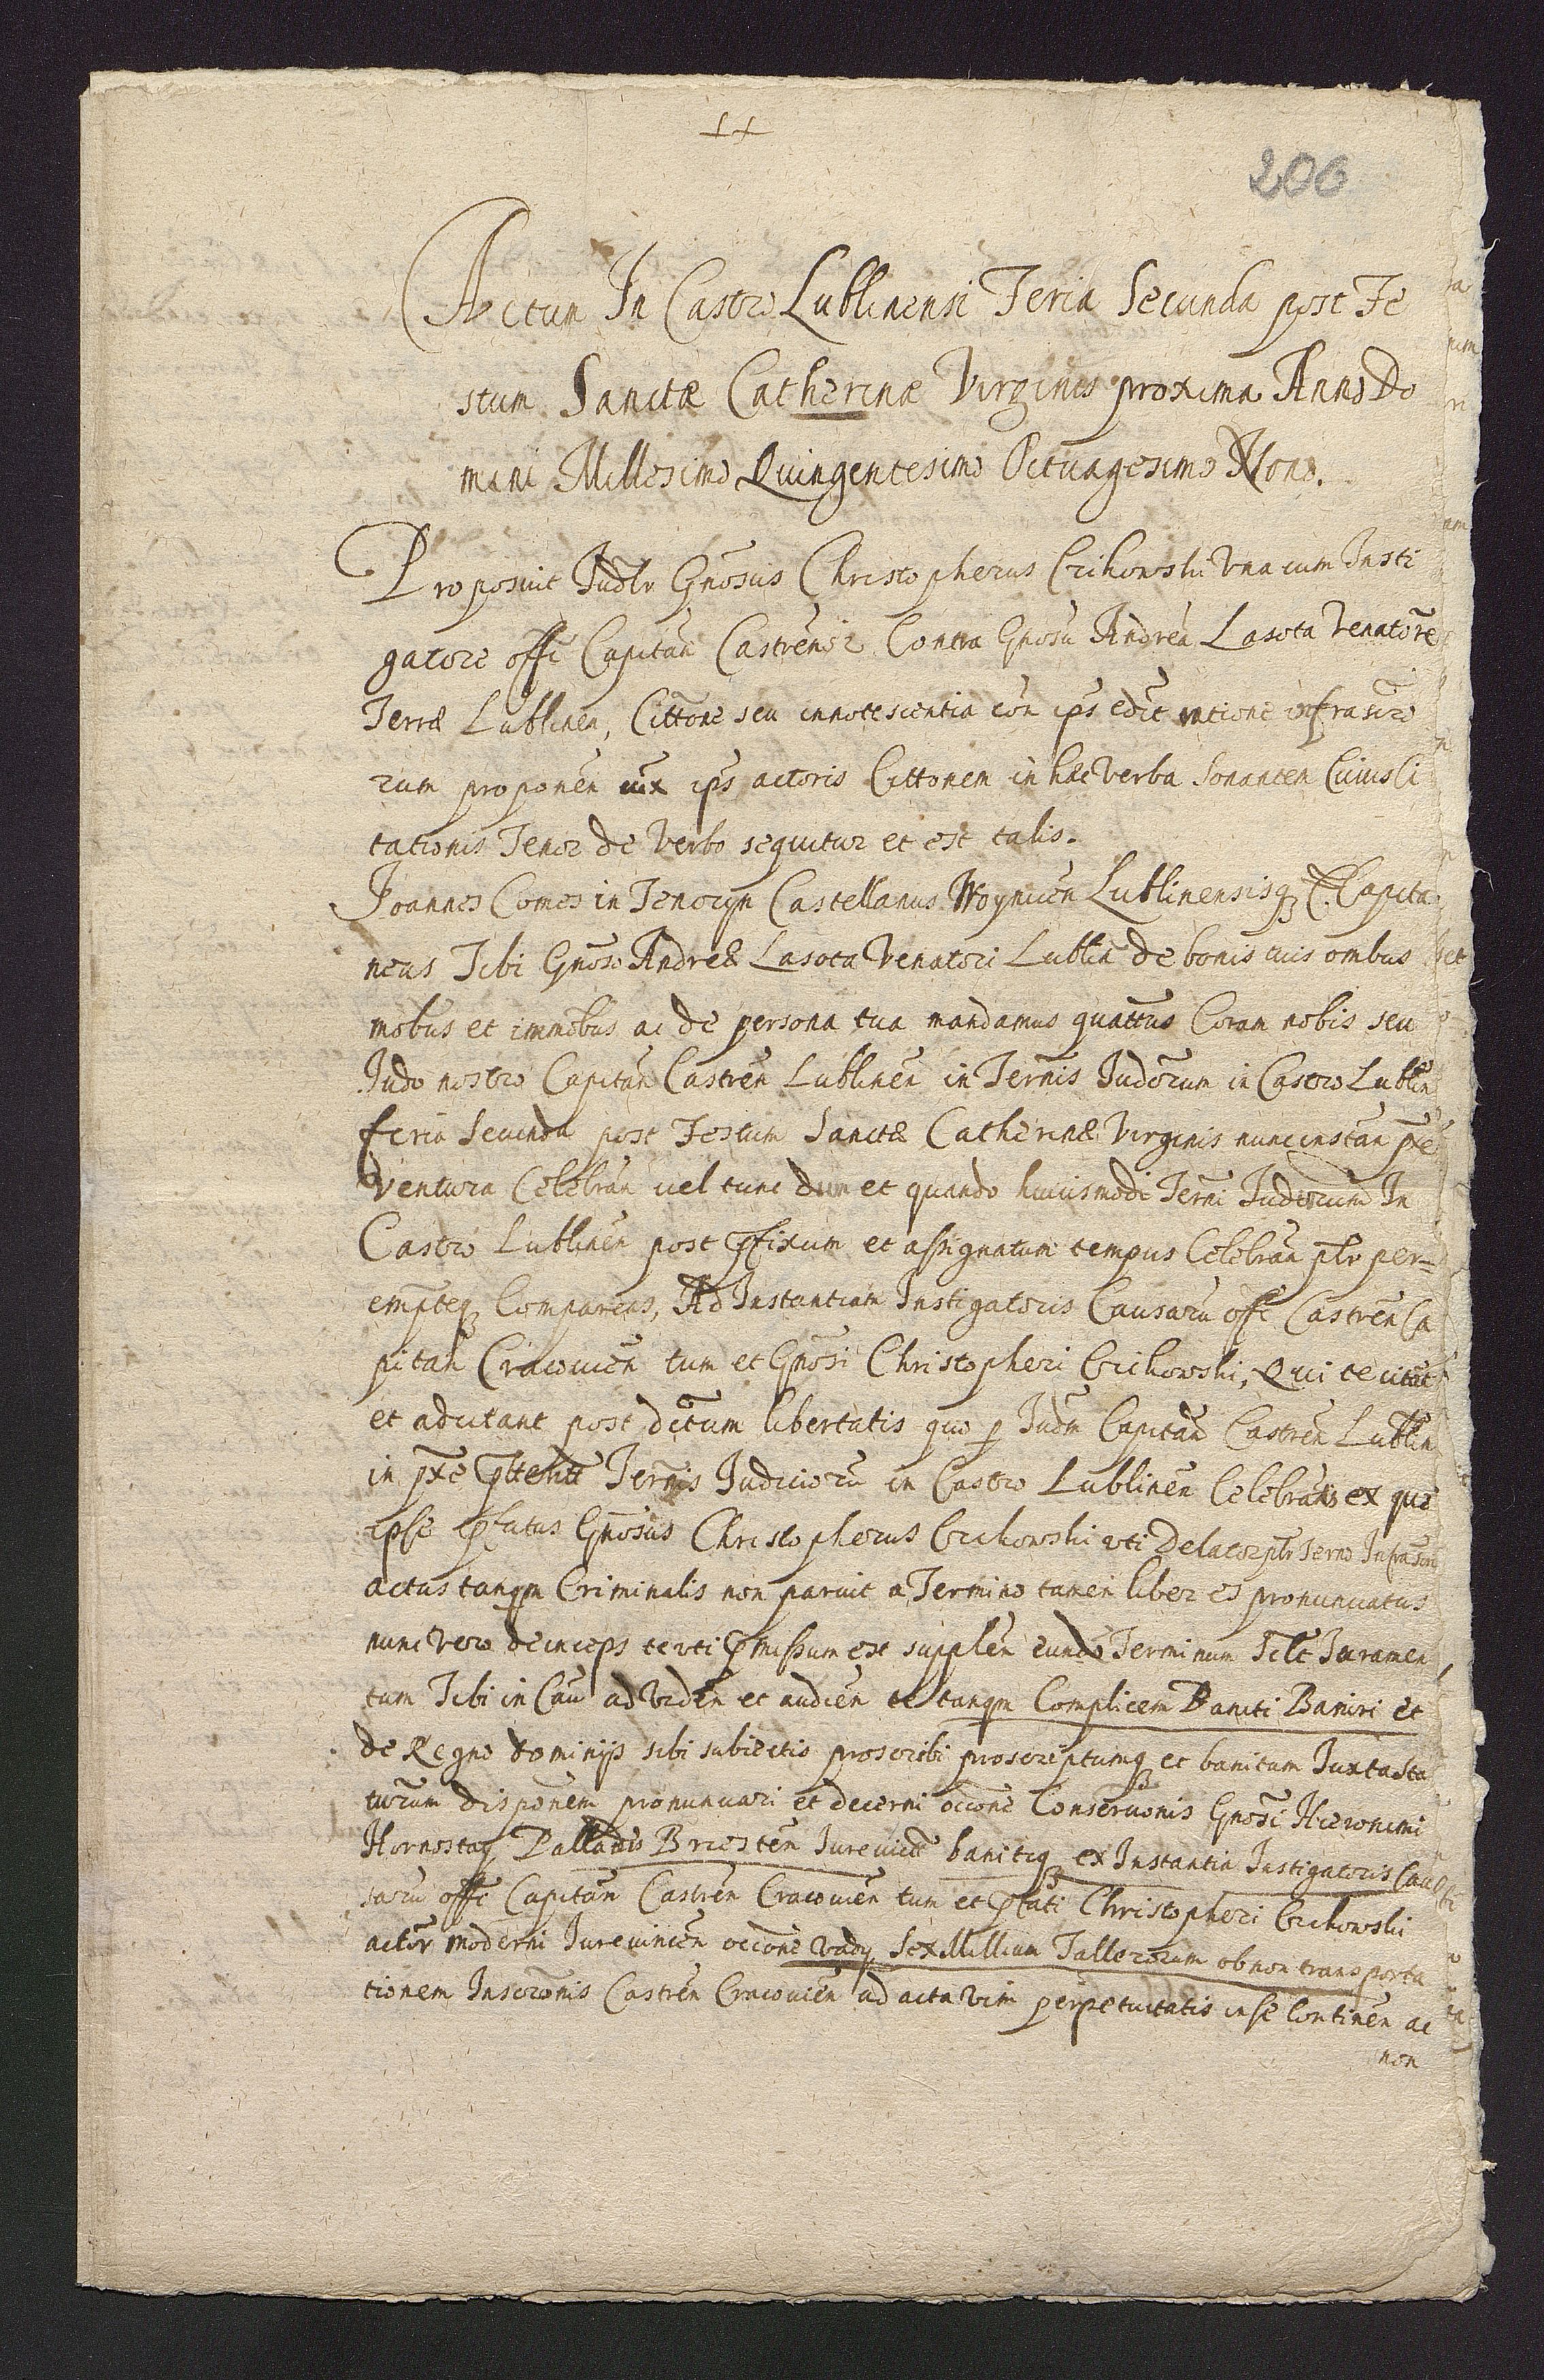 206
Actum In Castro Lublinensi Feria Secunda post Fe
stum Sanctæ Catherinæ Virginis proxima Anno Do
mini Millesimo Quingentesimo Octuagesimo Nono.
Proposuit Judlr Gnosus Christopherus Czikowski una cum Insti
gatore offi Capitan Castrensis Contra Gnosu Andrea Lasota Venatore
Terræ Lublinen, Cittone seu innotescentia con ips edit ratione infrascro
rum proponen iux ips actoris Cittonem in hæc verba Sonantem Cuius Ci
tationis Tenor de Verbo sequitur et est talis.
Joannes Comes in Tenczyn Castellanus Woynicen Lublinensisq Capita
neus Tibi Gnoso Andreæ Lasota Venatori Lublin de bonis tuis ombus
mobus et immobus ac de persona tua mandamus quattus Coram nobis seu
Judo nostro Capitan Castren Lublinen in Termis Judorum in Castro Lublin
feria Secunda post Festum Sanctæ Catherinæ Virginis nunc instan pxe
ventura Celebran uel tunc dum et quando huiusmodi Termi Judiorum In
Castro Lublinen post pfixum et assignatum tempus Celebran plr per=
empteq Compareas, Ad Instantiam Instigatoris Causaru offi Castren Ca
pitan Cracouien tum et Gnosi Christopheri Czikowski, Qui te citat
et adcitant post dictum libertatis quo p Judm Capitan Castren Lublin
in pxe Termis Judicioru in Castro Lublinen Celebratis ex quo
ipse pfatus Gnosus Christopherus Czikowski uti Delator plr Termo Infrascri
actus tanqm Criminalis non paruit a Termino tamen liber es pronunciatus
nunc vero deinceps te uti pmissum est supplen eundo Terminum Scilt Juramen
tum Tibi in Cau ad viden et audien te tanqm Complicem Baniti Baniri et
de Regno dominijs sibi subiectis proscribi proscriptumq et banitum Juxta sta
tutorum disponem pronunciari et decerni occone Conseruonis Gnosi Hieronimi
Hornostaj Pallatis Briesten Jureuict banitiq ex Instantia Instigatoris Cau
saru offi Capitan Castren Cracouien tum et pfati Christopheri Czikowski
actor moderni Jureuincen occone vadij Sex Millium Tallerorum ob non transporta
tionem Inscronis Castren Cracouien ad acta vim perpetuitatis in se Continen ac
non